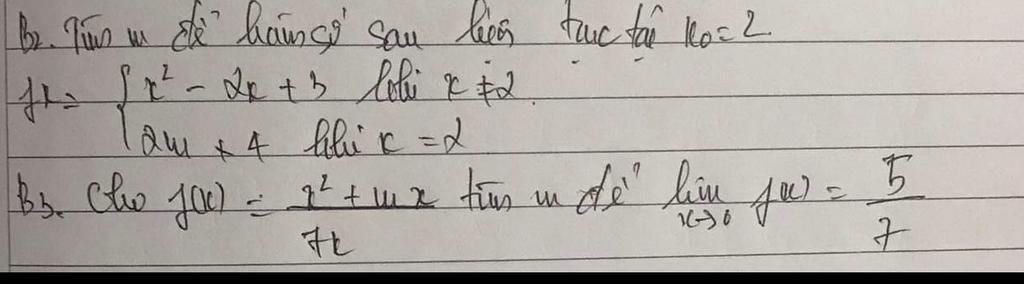 B2. Tìm m để hàm số sau liên tục tại x₀ = 2
f(x) = { x² - 2x + 3 khi x ≠ 2
2m + 4 khi x = 2
B3. Cho f(x) = (x² + mx)/(7x) tìm m để lim x→0 f(x) = 5/7